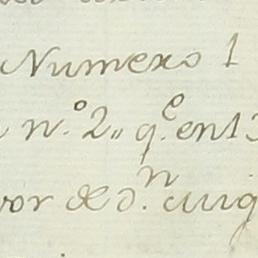 Numero 1
n.º 2,, q.e en 13
vor de d.n